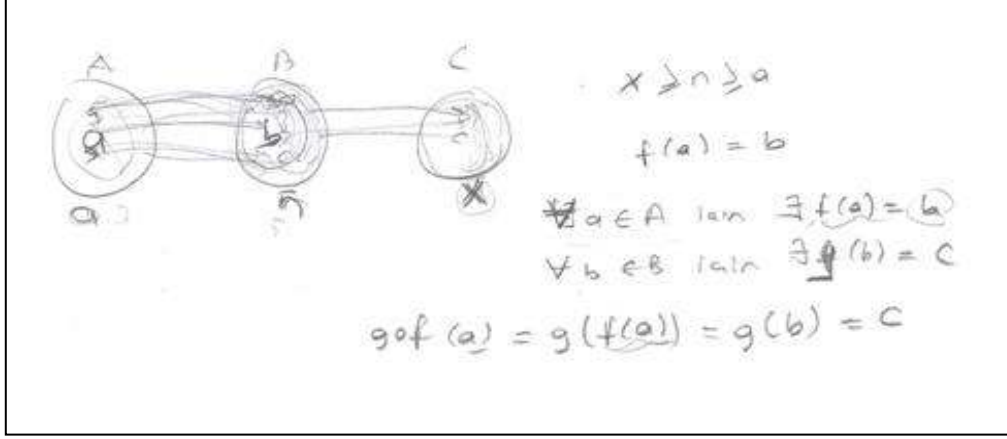 A B C
a b c
a n x
x ≥ n ≥ a
f(a) = b
∀ a ∈ A için ∃ f(a) = b
∀ b ∈ B için ∃ g(b) = c
gof (a) = g(f(a)) = g(b) = c